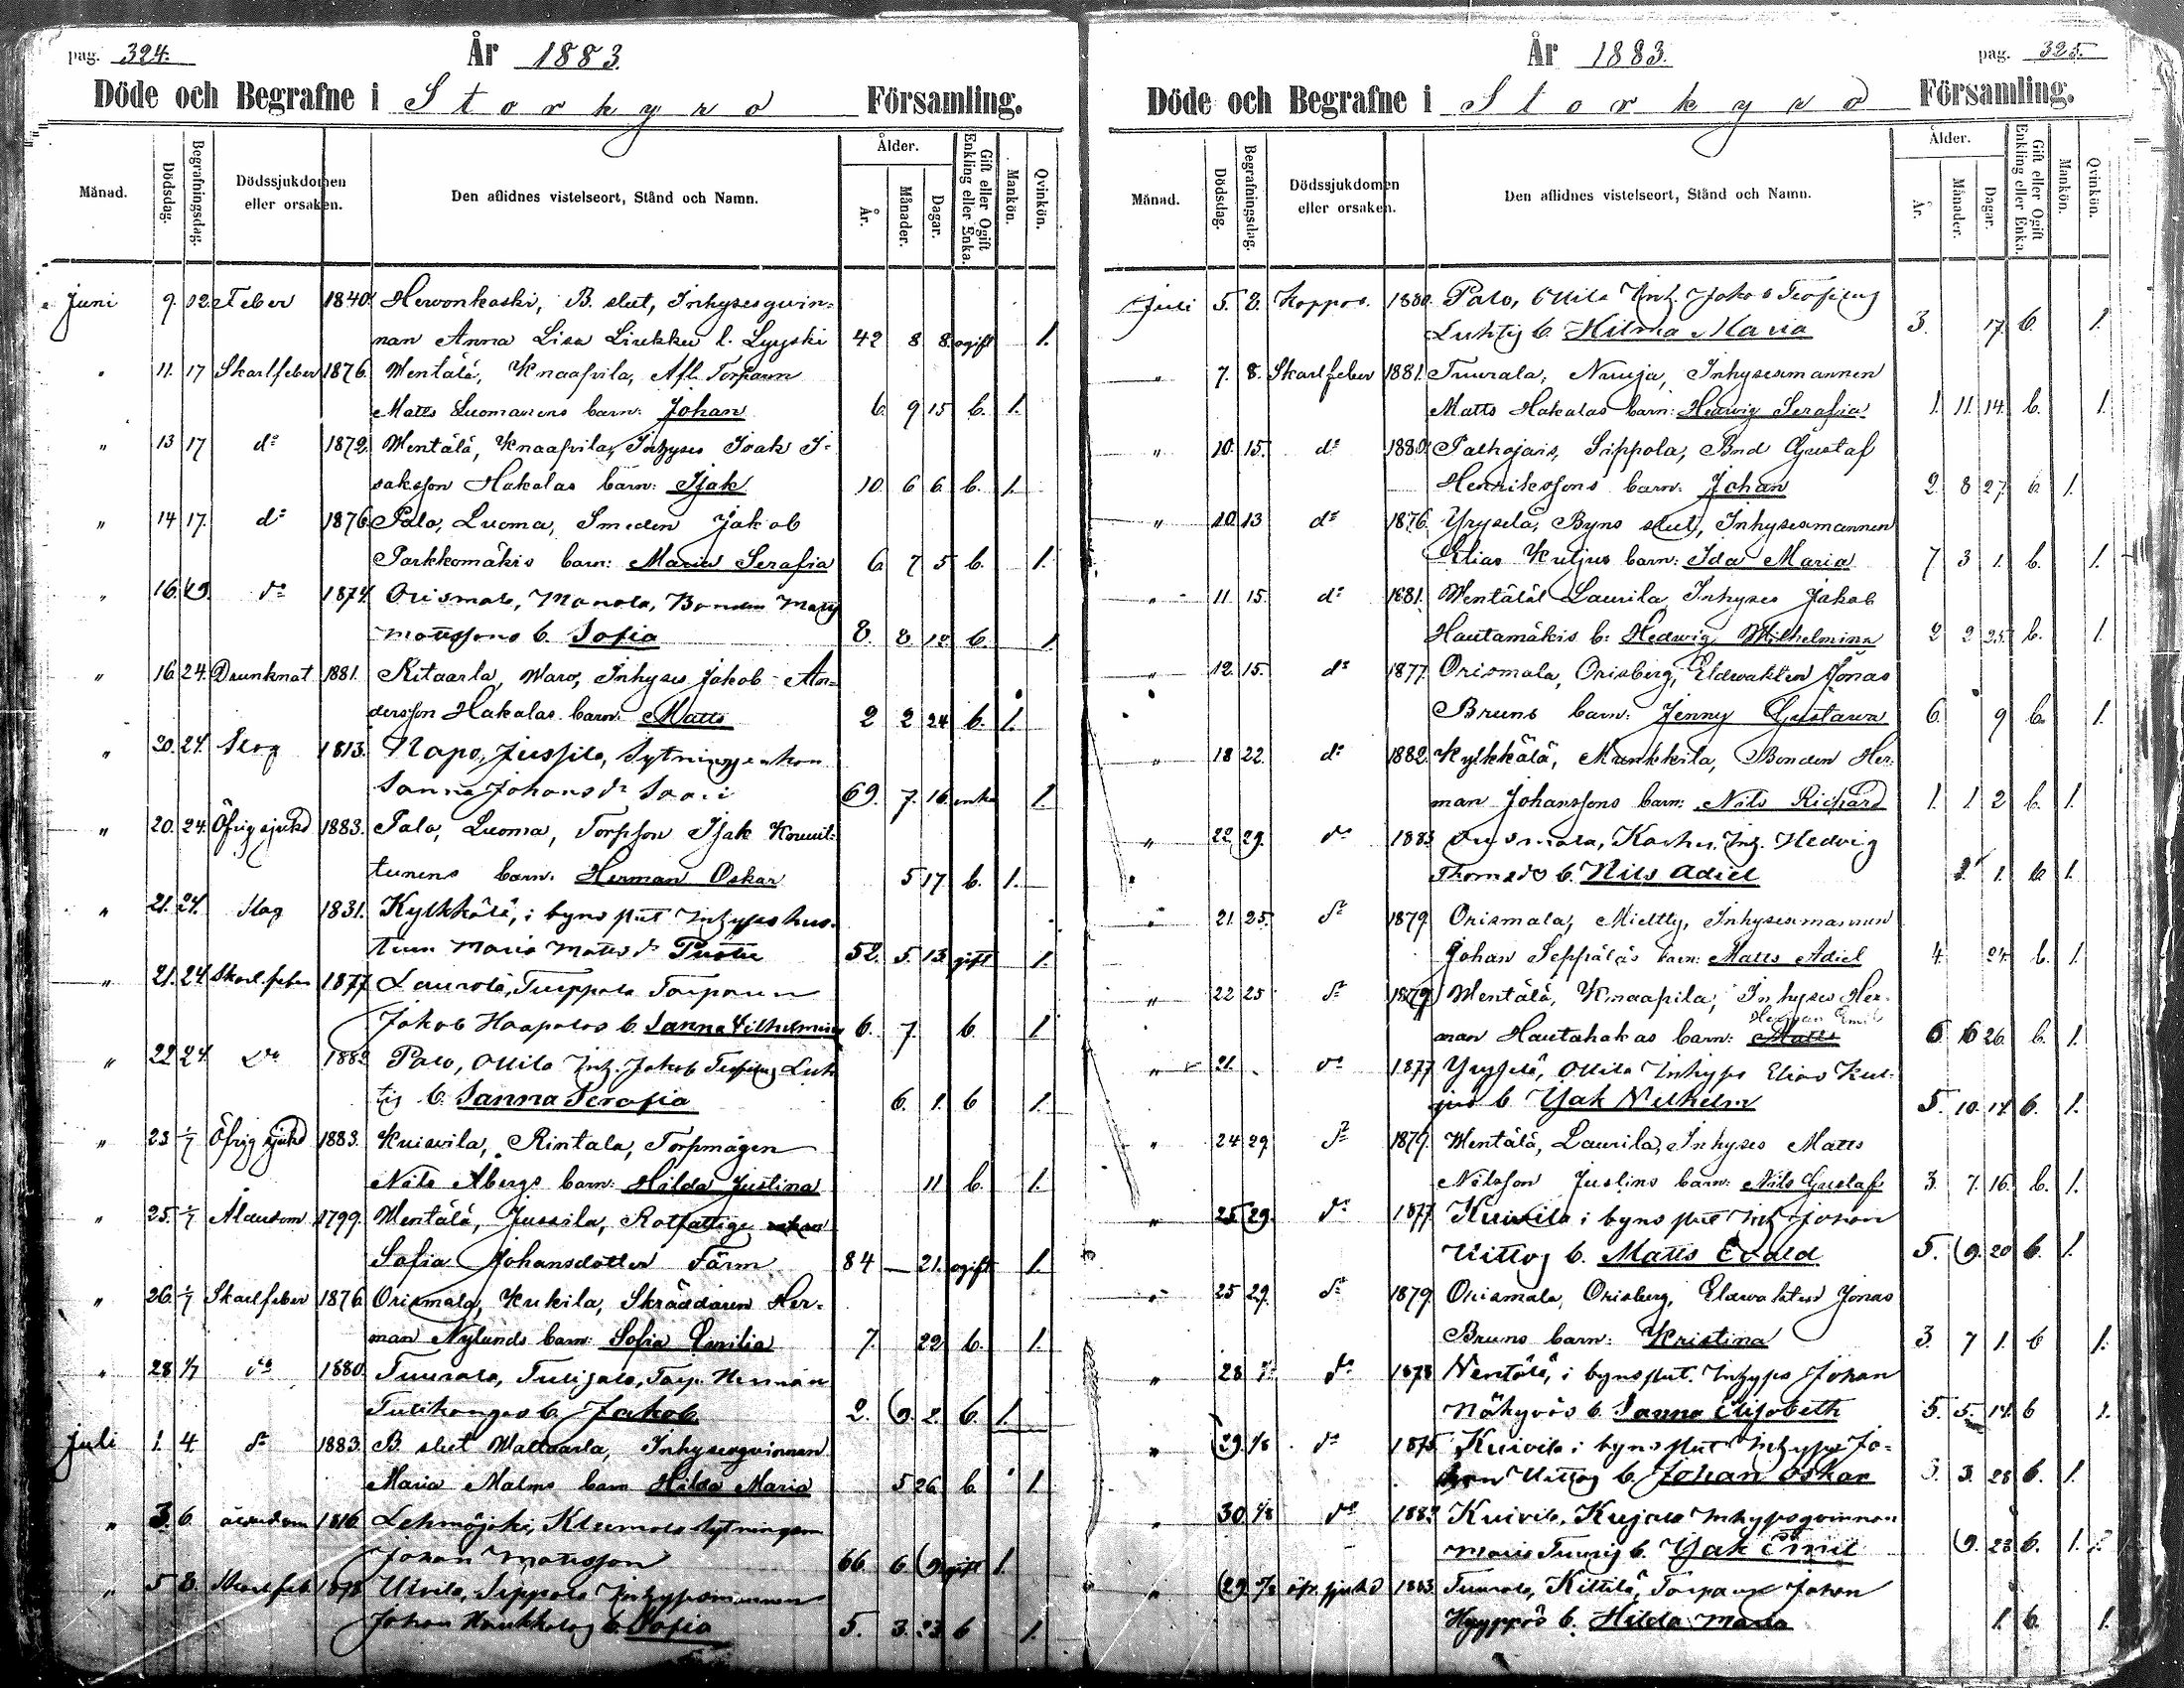 pag. 324.
År 1883.
Döde och Begrafne i Storkyro Församling.
Månad. Dödsdag. Begrafningsdag. Dödssjukdomen eller orsaken. Den aflidnes vistelseort, Stånd och Namn. Ålder. År. Månader. Dagar. Gift eller Ogift Enkling eller Enka. Mankön. Qvinkön.
Juni 9. 12. Feber 1840. Herronkoski, B. slut, Inhysesqvin-
nan Anna Lisa Liukku l. Lyyski 42 8 8. ogift 1.
" 11. 17 Skarlfeber 1876. Wentälä, Knaapila, Afl. Torparn
Matts Luomanens barn: Johan 6 9 15 b. 1.
" 13 17 do 1872. Wentälä, Knaapila, Inhyses Isak I-
saksson Hakalas barn: Isak 10 6 6. b. 1.
" 14 17. do 1876 Palo, Luoma, Smeden Jakob
Parkkomäkis barn: Maria Serafia 6 7 5 b. 1.
" 16. 19. do 1874 Orismala, Manola, Bonden Matts
Mattssons b. Sofia 8. 8 12 b. 1
" 16. 24. Drunknat 1881. Ritaarla, Waro, Inhyses Jakob An-
dersson Hakalas barn: Matts 2 2 24 b. 1.
" 20. 24. Slag 1813. Napo, Jussila, Sytningsenkan
Sanna Johansdr Saari 69. 7. 16 enka 1.
" 20. 24. Öfrig sjukd 1883. Palo, Luoma, Torpson Isak Kouvit-
tunens barn. Herman Oskar 5 17 b. 1.
" 21. 24. Slag 1831. Kylkkälä, i byns slut Inhyses hus-
trun Maria Mattsdr 52. 5. 13. gift 1.
" 21. 24 Skarl.feber 1877 Laurola, Turppala Torparn
Jakob Haapalas b. Sanna Wilhelmina 6. 7. b. 1
" 22 24. do 1882 Palo, Ollila Inh. Jakob Teofilus Luh-
tis b. Sanna Serafia 6. 1. b 1.
" 23 1/7 Öfrig sjukd 1883. Kuivila, Rintala, Torpmågen
Nils Åbergs barn: Hilda Justina 11 b. 1.
" 25. 1/7 Ålderdom 1799. Wentälä, Jussila, Rotfattige
Sofia Johansdotter Färm 84 — 21. ogift 1.
" 26. 1/7 Skarlfeber 1876 Orismala, Kukila, Skräddaren Her-
man Nylunds barn: Sofia Emilia 7. 22 b. 1.
" 28 1/7 do 1880. Tuurala, Tulijala, Torp. Herman
Tulikangas b. Jakob 2. 9. 2. b. 1.
Juli 1. 4. do 1883. B. slut Waltaarla, Inhysesqvinnan
Maria Malms barn Hilda Maria 5 26 b. 1
" 3. 6. ålderdom 1816 Lehmäjoki, Klemola Sytningsm
Johan Mattsson 66 6 9 gift 1.
" 5 8. Skarl.feb. 1878 Ulvila, Sippola Inhysesmannen
Johan b. Sofia 5. 3. 23 b 1.
pag. 325.
År 1883.
Döde och Begrafne i Storkyro Församling.
Månad. Dödsdag. Begrafningsdag. Dödssjukdomen eller orsaken. Den aflidnes vistelseort, Stånd och Namn. Ålder. År. Månader. Dagar. Gift eller Ogift Enkling eller Enka. Mankön. Qvinkön.
Juli 5. 8. Koppor. 1880. Palo, Ollila Inh. Jakob Teofilus
Luhtis b. Hilma Maria 3. 17. b. 1.
" 7. 8. Skarlfeber 1881. Tuurala, Nuuja, Inhysesmannen
Matts Hakalas barn: Hedwig Serafia. 1. 11. 14. b. 1.
" 10. 15. do 1880. Palhojais, Sippola, Bnd Gustaf
Henrikssons barn: Johan 2. 8 27 b. 1.
" 10. 13 do 1876. Yryselä, Byns slut, Inhysesmannen
Elias Kuljus barn: Ida Maria 7 3 1. b. 1.
" 11 15. do 1881. Wentälä Laurila, Inhyses Jakob
Hautamäkis b: Hedwig Wilhelmina 2 2 25. b. 1.
" 12. 15. do 1877. Orismala, Orisberg, Eldvakten Jonas
Bruns barn: Jenny Gustava 6. 9 b. 1.
" 18 22. do 1882. Kylkkälä, Munkkila, Bonden Her-
man Johanssons barn: Nils Richard 1. 1 2 b. 1.
" 22. 29. do 1883 Orismala, Inh. Hedvig
Thomasdr b. Nils Adiel 1. b 1.
" 21. 25. do 1879 Orismala, Mieltty, Inhysesmannen
Johan Seppäläs barn: Matts Adiel 4. 24. b. 1.
" 22 25 do Wentälä, Knaapila, Inhyses Her-
Herman Emil
man Hautahakas barn: Matts 6 26 b. 1.
" 21. do 1877 Yryselä, Ollila Inhyses Elias Kul-
jus b Isak Wilhelm 5. 10. 14 b. 1.
" 24 29. do 1879. Wentälä, Laurila, Inhyses Matts
Nilsson Juslins barn: Nils Gustaf 3. 7. 16. b. 1.
" 25 29. do 1877. Kuivila i byns slut Inh Johan
b. Matts Evald 5. 9. 20 b. 1.
" 25 29. do 1879. Orismala, Orisberg, Eldvakten Jonas
Bruns barn: Kristina 3. 7 1. b 1.
" 28 do 1878 Wentälä, i byns slut. Inhyses Johan
Näkyväs b. Sanna Elisabeth 5. 5. 14. b 1.
" 29. 1/8 do 1875 Kuivila i byns slut Inhyses Jo-
han b. Johan Oskar 3. 28 b. 1.
" 30 1/8 do 1882 Kuivila, Kujala Inhysesqvinnan
Maria b. Isak Emil 9. 23 b. 1.
" 29 öfr. sjukd 1883. Tuurala, Kittilä, Torparen Johan
Hyyppäs b. Hilda Maria 1. b. 1.